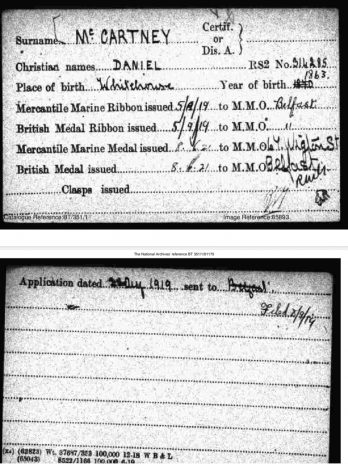 Surname Mc CARTNEY Certif. or Dis. A.
Christian names DANIEL RS2 No. 514285
Place of birth Whitehouse Year of birth 1863.
Mercantile Marine Ribbon issued 5/9/19 to M.M.O. Belfast
British Medal Ribbon issued 5/9/19 to M.M.O. "
Mercantile Marine Medal issued 8. 4. 21 to M.M.O.
British Medal issued 8. 4. 21 to M.M.O. Belfast
Clasps issued
Catalogue Reference:BT/351/1 Image Reference:85893
The National Archives reference BT 351/1/81179
Application dated 1919 sent to Belfast
Filed
100,000 12-18 W B & L